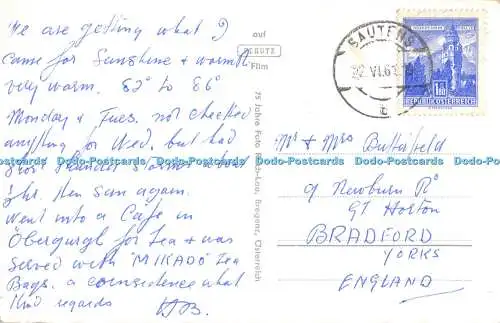 We are getting what I
came for Sunshine & warmth
very warm. 82° to 86°
Monday & Tues. not checked
anything for Wed. but had
Thunder Storm about
hr. then Sun again.
Went into a Cafe in
Obergurgl for Tea & was
served with "MIKADO" Tea
Bags. a coincidence what
Kind regards
HB.
auf
PERUTZ
Film
75 Jahre Foto Risch-Lau, Bregenz, Österreich
SAUTENS
22.VI.67
b
1.80
REPUBLIK ÖSTERREICH
Mr & Mrs Butterfield
9 Newburn Rd
GT Horton
BRADFORD
YORKS
ENGLAND
Dodo-Postcards Dodo-Postcards Dodo-Postcards Dodo-Postcards Dodo-Postcards Dodo-Postcards